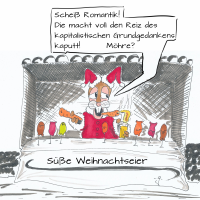 Scheiß Romantik!
Die macht voll den Reiz des
kapitalistischen Grundgedankens
kaputt! Möhre?
Süße Weihnachtseier